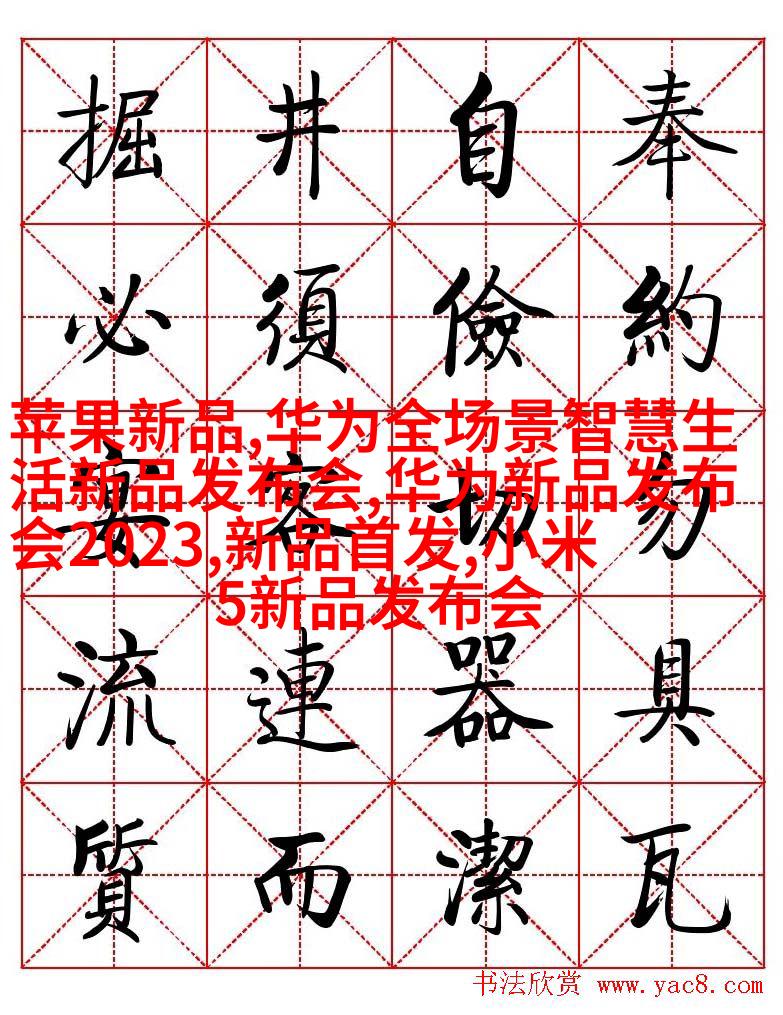 掘井自奉
必須儉約
宴客切勿
流連器具
質而潔瓦
苹果新品,华为全场景智慧生
活新品发布会,华为新品发布
会2023,新品首发,小米
5新品发布会
书法欣赏 www.yac8.com